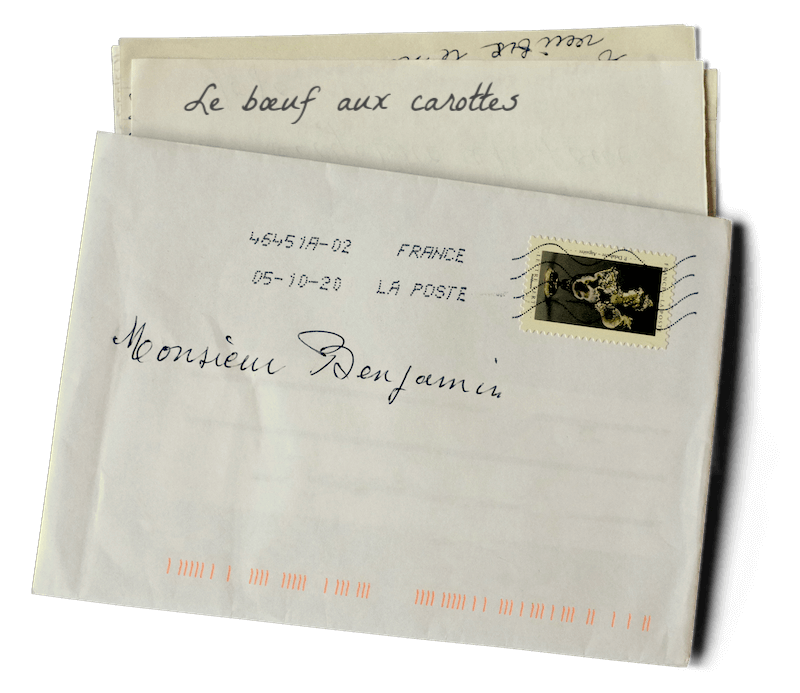 Le bœuf aux carottes
46451A-02 FRANCE
05-10-20 LA POSTE
Monsieur Benjamin